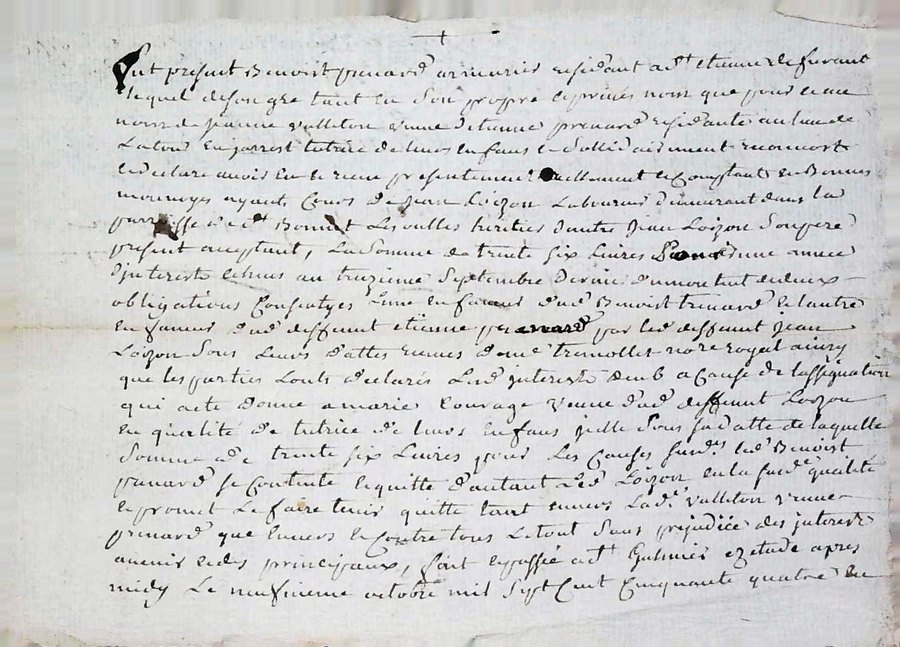 +
fut présent Benoist penard armurier residant a St etienne de furant
lequel de son gre tant en son propre et privés nom que pour et au
nom de Jeanne valliton veuve d'etienne penard residante au lieu de
Latour en Jarrest tutrice de leurs enfans et sollidairement
declare avoir eu et receu presentement reellement et Comptant en Bonnes
monnoyes ayant Cours de Jean Loizon Laboureur demeurant dans la
parroisse de St Bonnet Les oulles heritier d'autre Jean Loizon Son pere
présent acceptant, La Somme de trente six Livres pour une année
d'interests echus au treizieme Septembre dernier du montant de deux
obligations Consenties L'une en faveur dud Benoist penard et l'autre
en faveur dud deffunt etienne penard par led deffunt Jean
Loizon Sous Leurs dattes recues dome tremollet nore royal ainsy
que les parties L'ont declarés Led interests deub a Cause de l'assignation
qui a ete donné a marie Courage veuve dud deffunt Loizon
en qualité de tutrice de leurs enfans Sous Sa datte de laquelle
Somme de trente six Livres pour Les Causes Susd. led Benoist
penard se Contente et quitte d'autant Led Loizon en la susd. qualité
et promet Le faire tenir quitte tant envers Lad. valliton veuve
penard que envers et Contre tous Le tout Sans prejudice des interests
avenir et des principaux, fait et passé a St Galmier ez etude apres
midy Le neufvieme octobre mil Sept Cent Cinquante quatre en